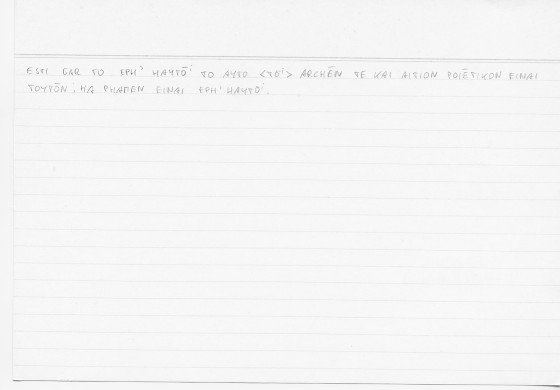 ESTI GAR TO EPH' HAUTŌⁱ TO AUTO <TŌⁱ> ARCHĒN TE KAI AITION POIĒTIKON EINAI
TOUTŌN, HA PHAMEN EINAI EPH' HAUTŌⁱ.